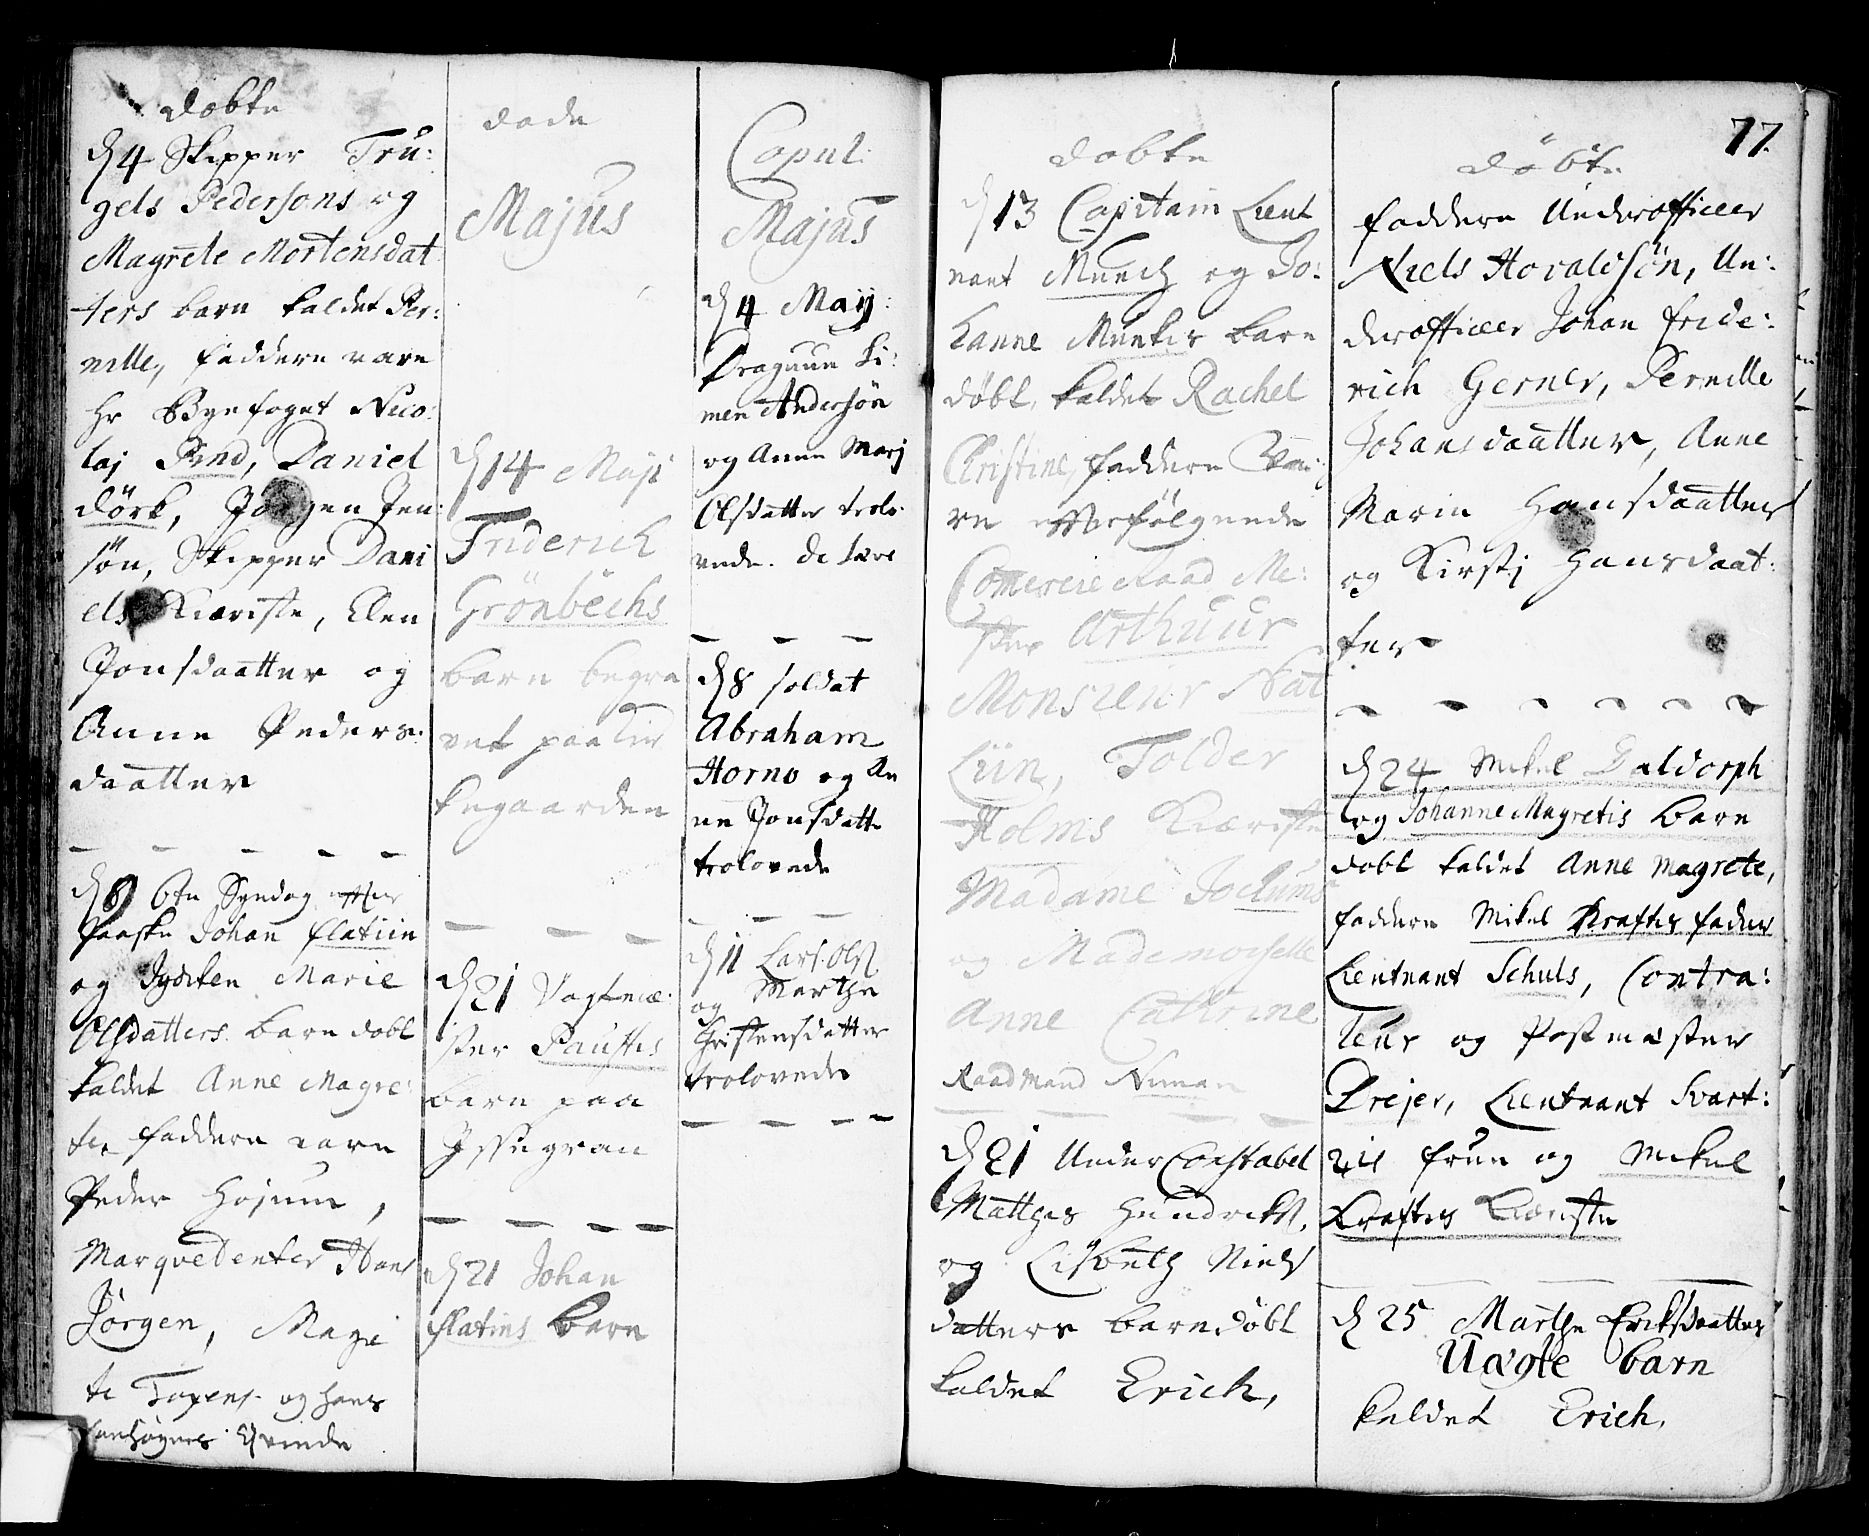 döbte
d 4 Skipper Tru:
gels Pedersøns og
Magrete Mortensdat
ters barn kaldet Per:
nille, faddere vare
Hr Byefoget Nico:
laj Pind, Daniel
Dörk, Jörgen Jen
søn, Skipper Dani
els Kiæriste, Elen
Jonsdaatter og
Anne Peders:
daatter
d 6te Syndag efter
Paaske Johan Flatiin
og Marie
Olsdatters barn döbt
kaldet Anne Magre:
te faddere vare
Peder Hojum,
Marqvedenter Hans
Jörgen, Magre
te og Hans
Qvinde
döde
Majus
d 14 Maji
Friderich
Grönbechs
barn begra
vet paa Kir
kegaarden
d 21 Vagtmæ:
ster Paustes
barn paa
Issegran
d 21 Johan
Flatins barn
Copul:
Majus
d 4 Maij:
Dragun Si:
men Andersön
og Anne Marj
Olsdatter trolo:
vede.
d 8 soldat
Abraham
Horno og An
ne Jonsdatte
trolovede
d 11 Lars Ols
og Marthe
Christensdatter
trolovede
döbte
d 13 Capitain Lieut
nant Munch og Jo:
hanne Munkes barn
döbt, kaldet Rachel
Christine, faddere va:
re efterfölgende
Comercie Raad Me:
ster Arthuur
Monsieur Nat
Liin, Tolder
Holms Kiæriste
Madame Jochums
og Mademoiselle
Anne Cathrine
Raadmand Niman
d 21 Under Constabel
Matthes Hendrichs.
og Lisbeth Niels
datters barn döbt
kaldet Erich,
77.
döbte
faddere Underofficer
Niels Hovaldsön, Un:
derofficer Johan Fride:
rich Gerner, Pernille
Johansdaatter, Anne
Marie Hansdaatter
og Kirstj Hansdaat:
ter
d 24 Mikel Galdorph
og Johanne Magretis barn
döbt kaldet Anne Magrete,
faddere Mikel Kraftes fader
Lieutnant Schuls, Contra:
leur og Postmæster
Drejer, Lieutnant Svart:
frue og Mikel
Kraftes Kiæriste
d 25 Marthe Eriksdaatters
Uægte barn
kaldet Erich,